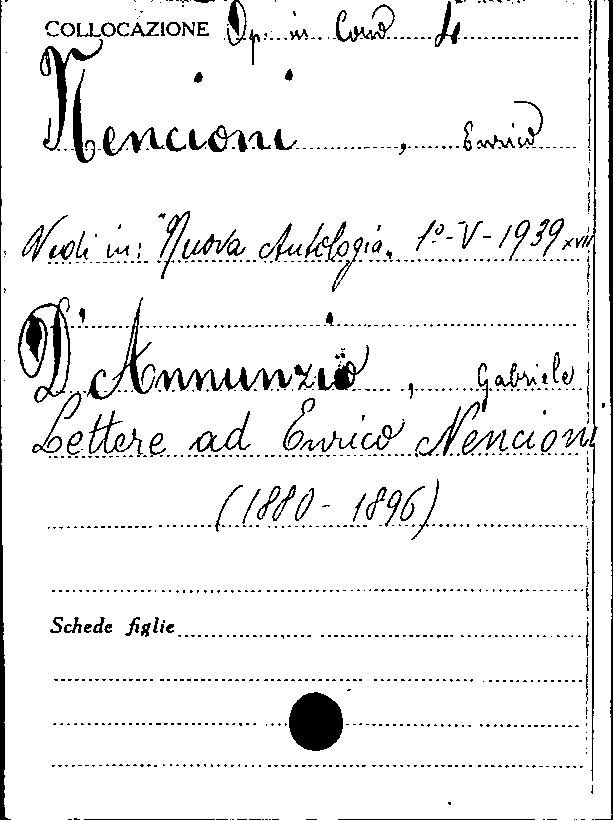 COLLOCAZIONE Op. in Cons 4
Nencioni, Enrico
Vedi in: "Nuova Antologia" 1º-V-1939 XVII
D'Annunzio, Gabriele
Lettere ad Enrico Nencioni
(1880-1896)
Schede figlie